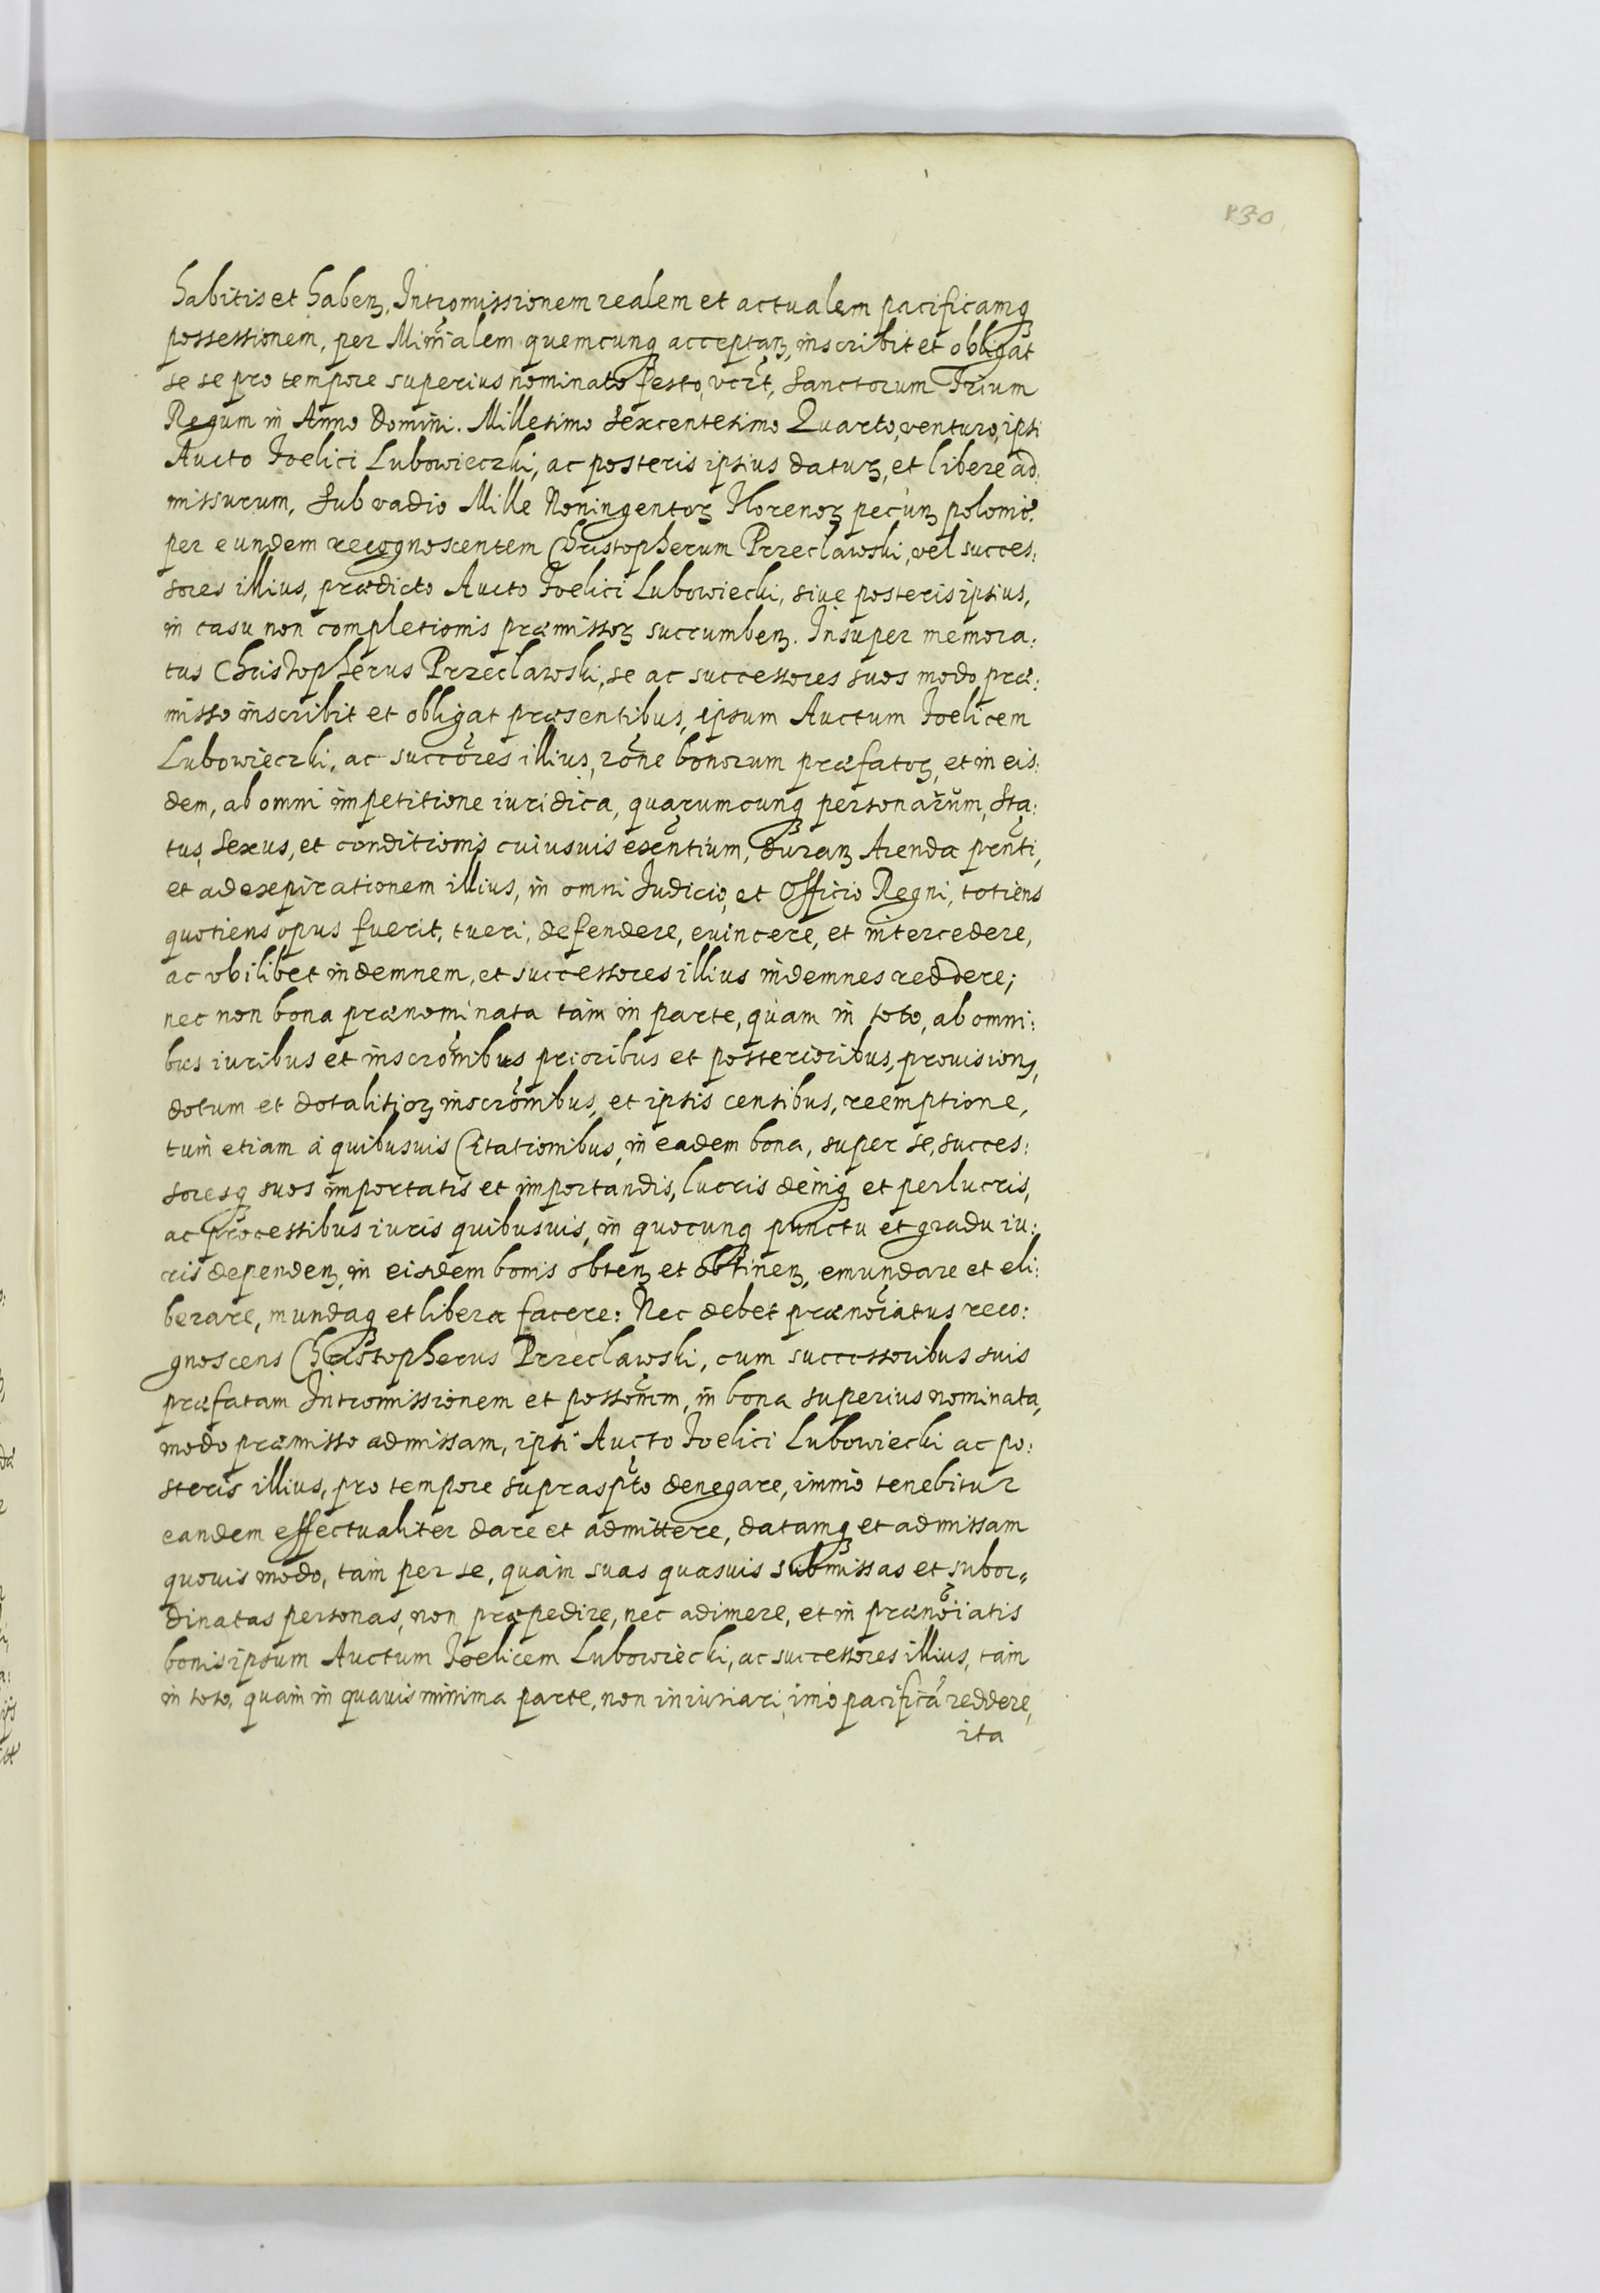 130
habitis et habenꝫ, Intromissionem realem et actualem pacificamqꝫ
possessionem, per Mim̃alem quemcunqꝫ acceptanꝫ, inscribit et obligat
se se pro tempore superius nominato festo, vcꝫt, Sanctorum Trium
Regum in Anno Domini. Millesimo Sexcentesimo Quarto, venturo, ipsi
Aucto Foelici Lubowieczki, ac posteris ipsius daturꝫ, et libere ad
missurum, Sub vadio Mille Noningentorꝫ Florenorꝫ pecunꝫ polonic̃.
per eundem recognoscentem Christopherum Przeclawski, vel succes:
sores illius, prædicto Aucto Foelici Lubowiecki, siue posteris ipsius,
in casu non completionis præmissorꝫ succumbenꝫ. Insuper memora:
tus Christopherus Przeclawski, se ac successores suos modo præ:
misso inscribit et obligat præsentibus, ipsum Auctum Foelicem
Lubowieczki, ac succõres illius, rõne bonorum præfatorꝫ, et in eis:
dem, ab omni impetitione iuridica, quarumcunqꝫ personarũm, Sta:
tus, Sexus, et conditionis cuiusuis exñtium, duranꝫ Arenda prñti,
et ad expirationem illius, in omni Iudicio, et Officio Regni, totiens
quotiens opus fuerit, tueri, defendere, euincere, et intercedere,
ac vbilibet indemnem, et successores illius indemnes reddere;
nec non bona prænominata tàm in parte, quàm in toto, ab omni:
bus iuribus et inscrõnibus prioribus et posterioribus, prouisionꝫ,
dotum et dotalitiorꝫ inscrõnibus, et ipsis censibus, reemptione,
tum etiam à quibusuis Citationibus, in eadem bona, super se, succes:
soresqꝫ suos importatis et importandis, lucris deniqꝫ et perlucris,
ac processibus iuris quibusuis, in quocunqꝫ punctu et gradu iu:
ris dependenꝫ, in eisdem bonis obtenꝫ et obtinenꝫ, emundare et eli:
berare, mundaqꝫ et libera facere: Nec debet prænoĩatus reco:
gnoscens Christopherus Przeclawski, cum successoribus suis
præfatam Intromissionem et possõnem, in bona superius nominata,
modo præmisso admissam, ipsi Aucto Foelici Lubowiecki ac po:
steris illius, pro tempore suprasp̃to denegare, immo tenebitur
eandem effectualiter dare et admittere, datamqꝫ et admissam
quouis modo, tàm per se, quàm suas quasuis submissas et subor„
dinatas personas, non præpedire, nec adimere, et in prænoĩatis
bonis ipsum Auctum Foelicem Lubowiecki, ac successores illius, tàm
in toto, quàm in quauis minima parte, non iniuriari, imò pacificã reddere,
ita